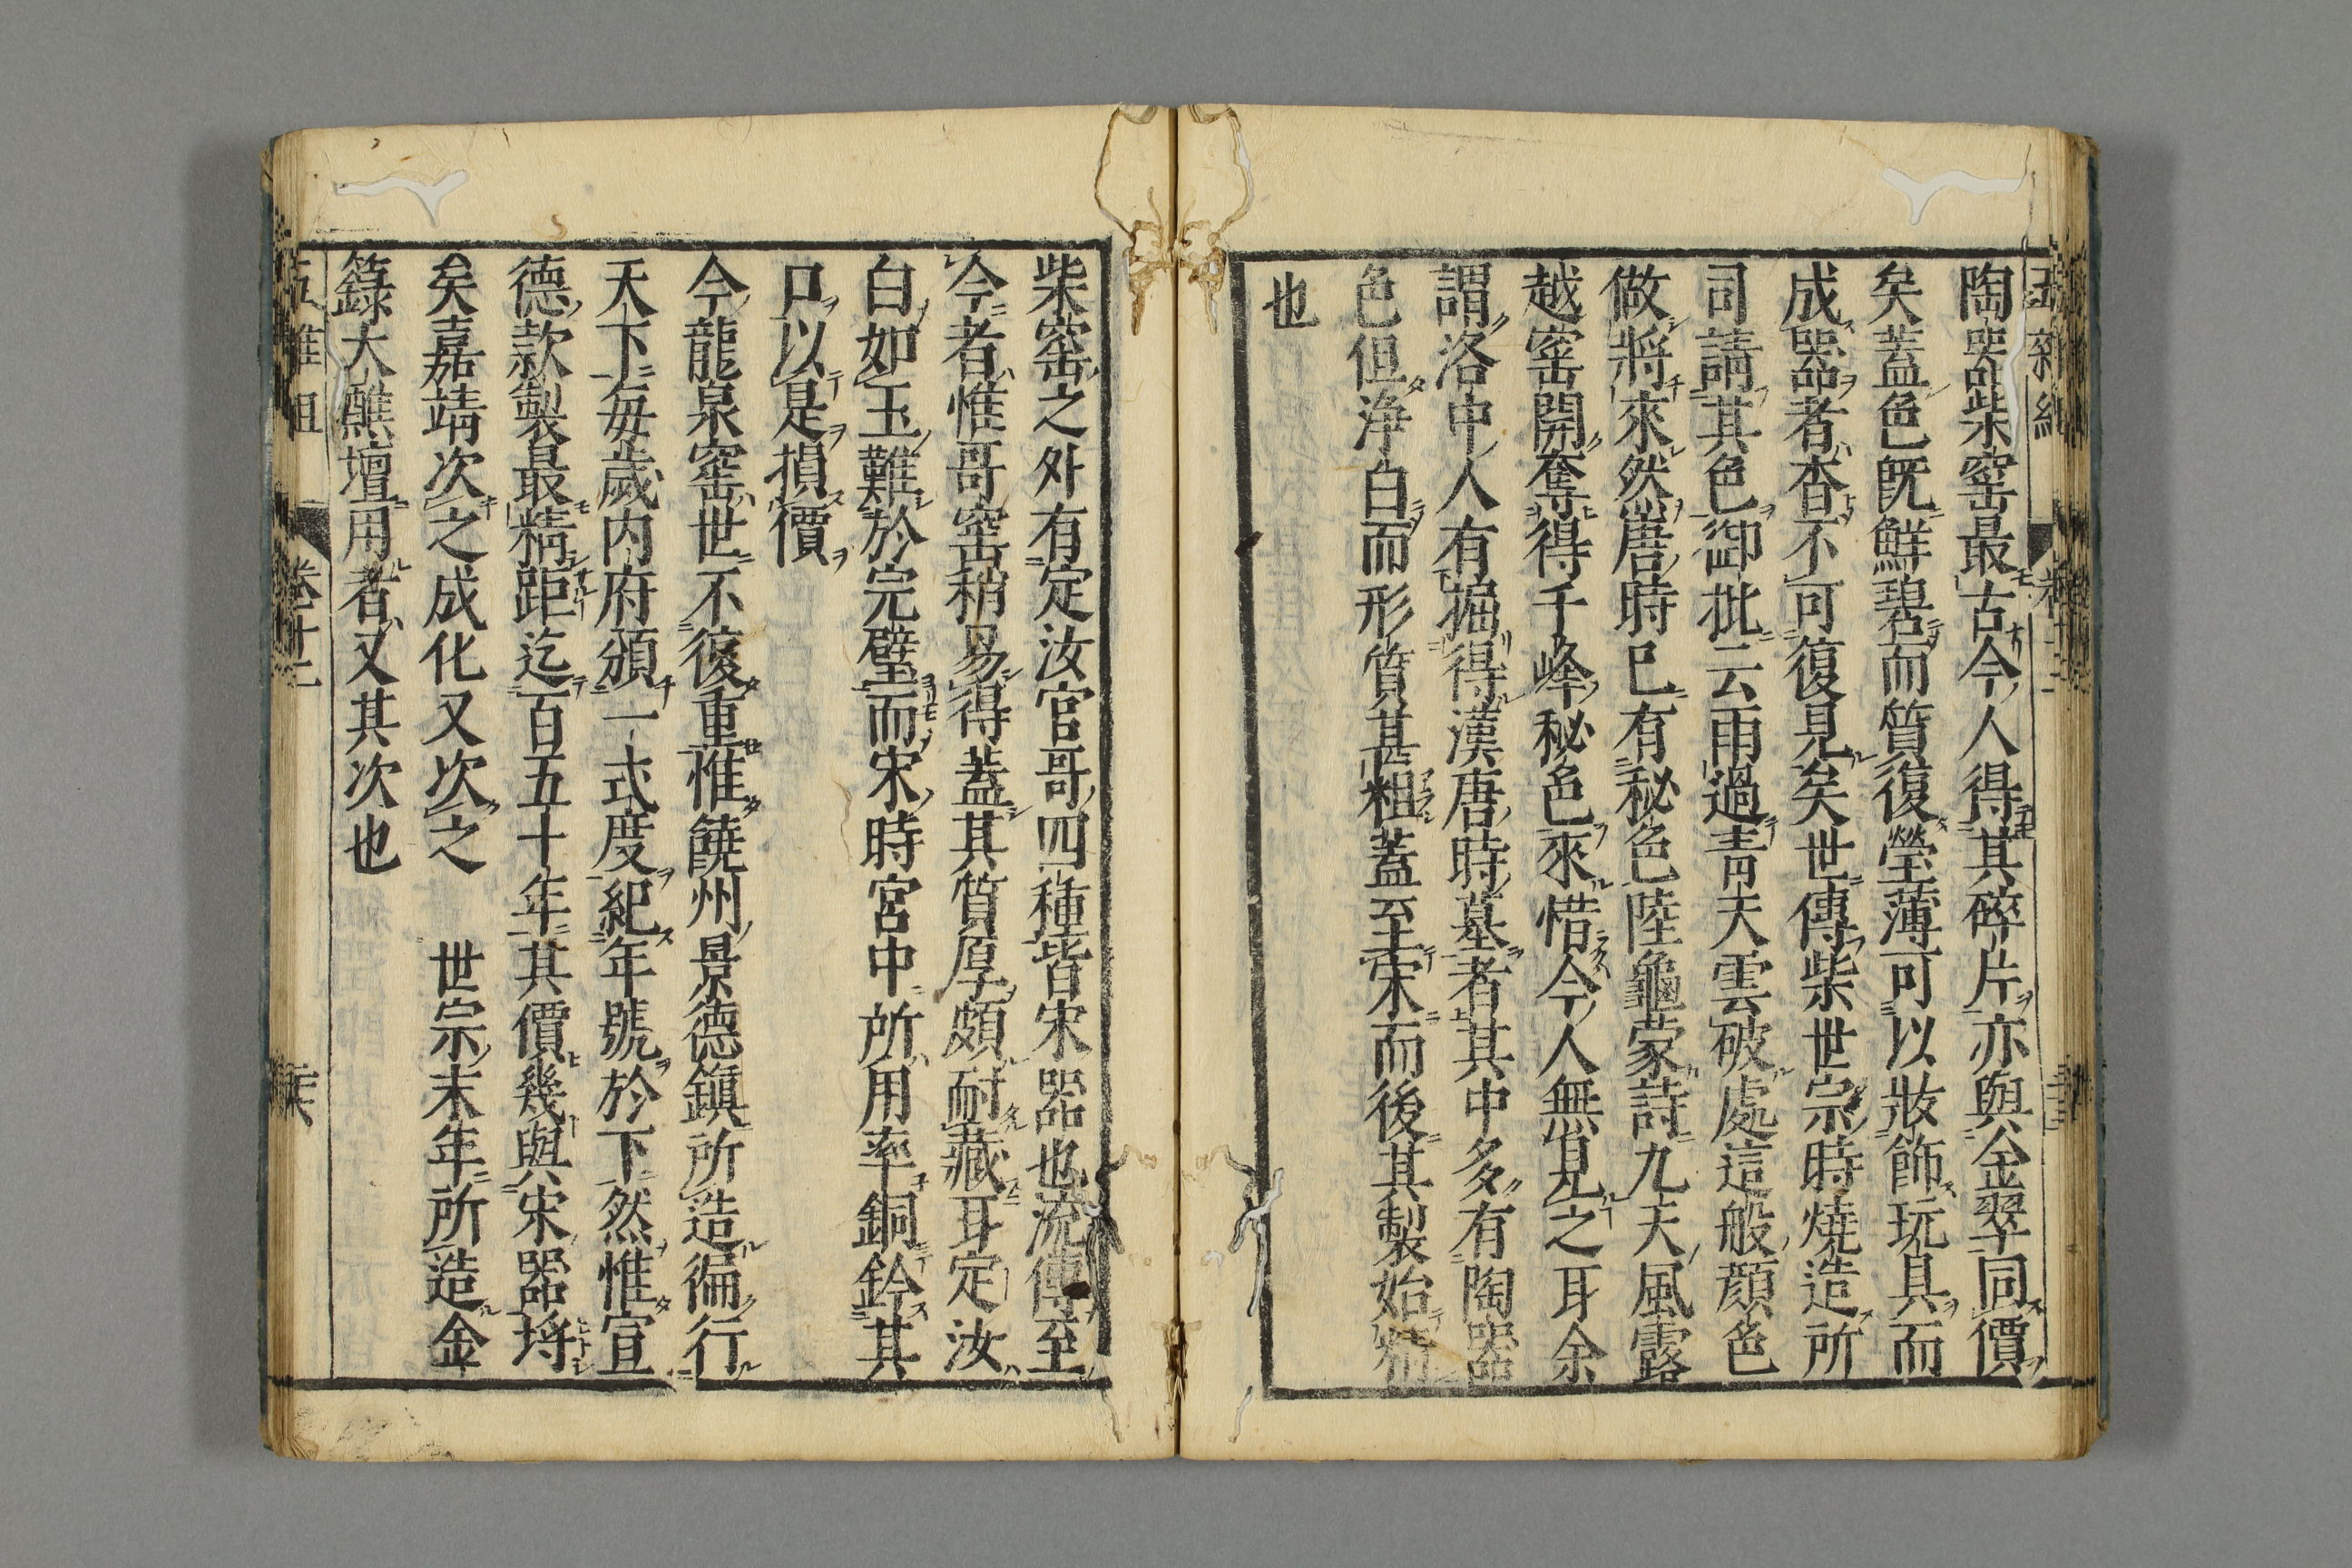 陶器柴窑最古今人得其碎片亦與金翠同價
矣蓋色既鮮碧而質復瑩薄可以妝飾玩具而
成器者杳不可復見矣世傳柴世宗時燒造所
司請其色御批云雨過青天雲破處這般顔色
做將來然唐時巳有秘色陸龜蒙詩九天風露
越窑開奪得千峰秘色來惜今人無見之耳余
謂洛中人有掘得漢唐時墓者其中多有陶器
色但淨白而形質甚粗蓋至宋而後其製始精
也
柴窑之外有定汝官哥四種皆宋器也流傳至
今者惟哥窑稍易得蓋其質厚頗耐藏耳定汝
白如玉難於完璧而宋時宮中所用率銅鈐其
口以是損價
今龍泉窑世不復重惟饒州景德鎮所造徧行
天下每歲内府頒一式度紀年號於下然惟宣
德款製最精距迄百五十年其價幾與宋器埒
矣嘉靖次之成化又次之 世宗末年所造金
籙大醮壇用者又其次也
五雜俎 卷十二